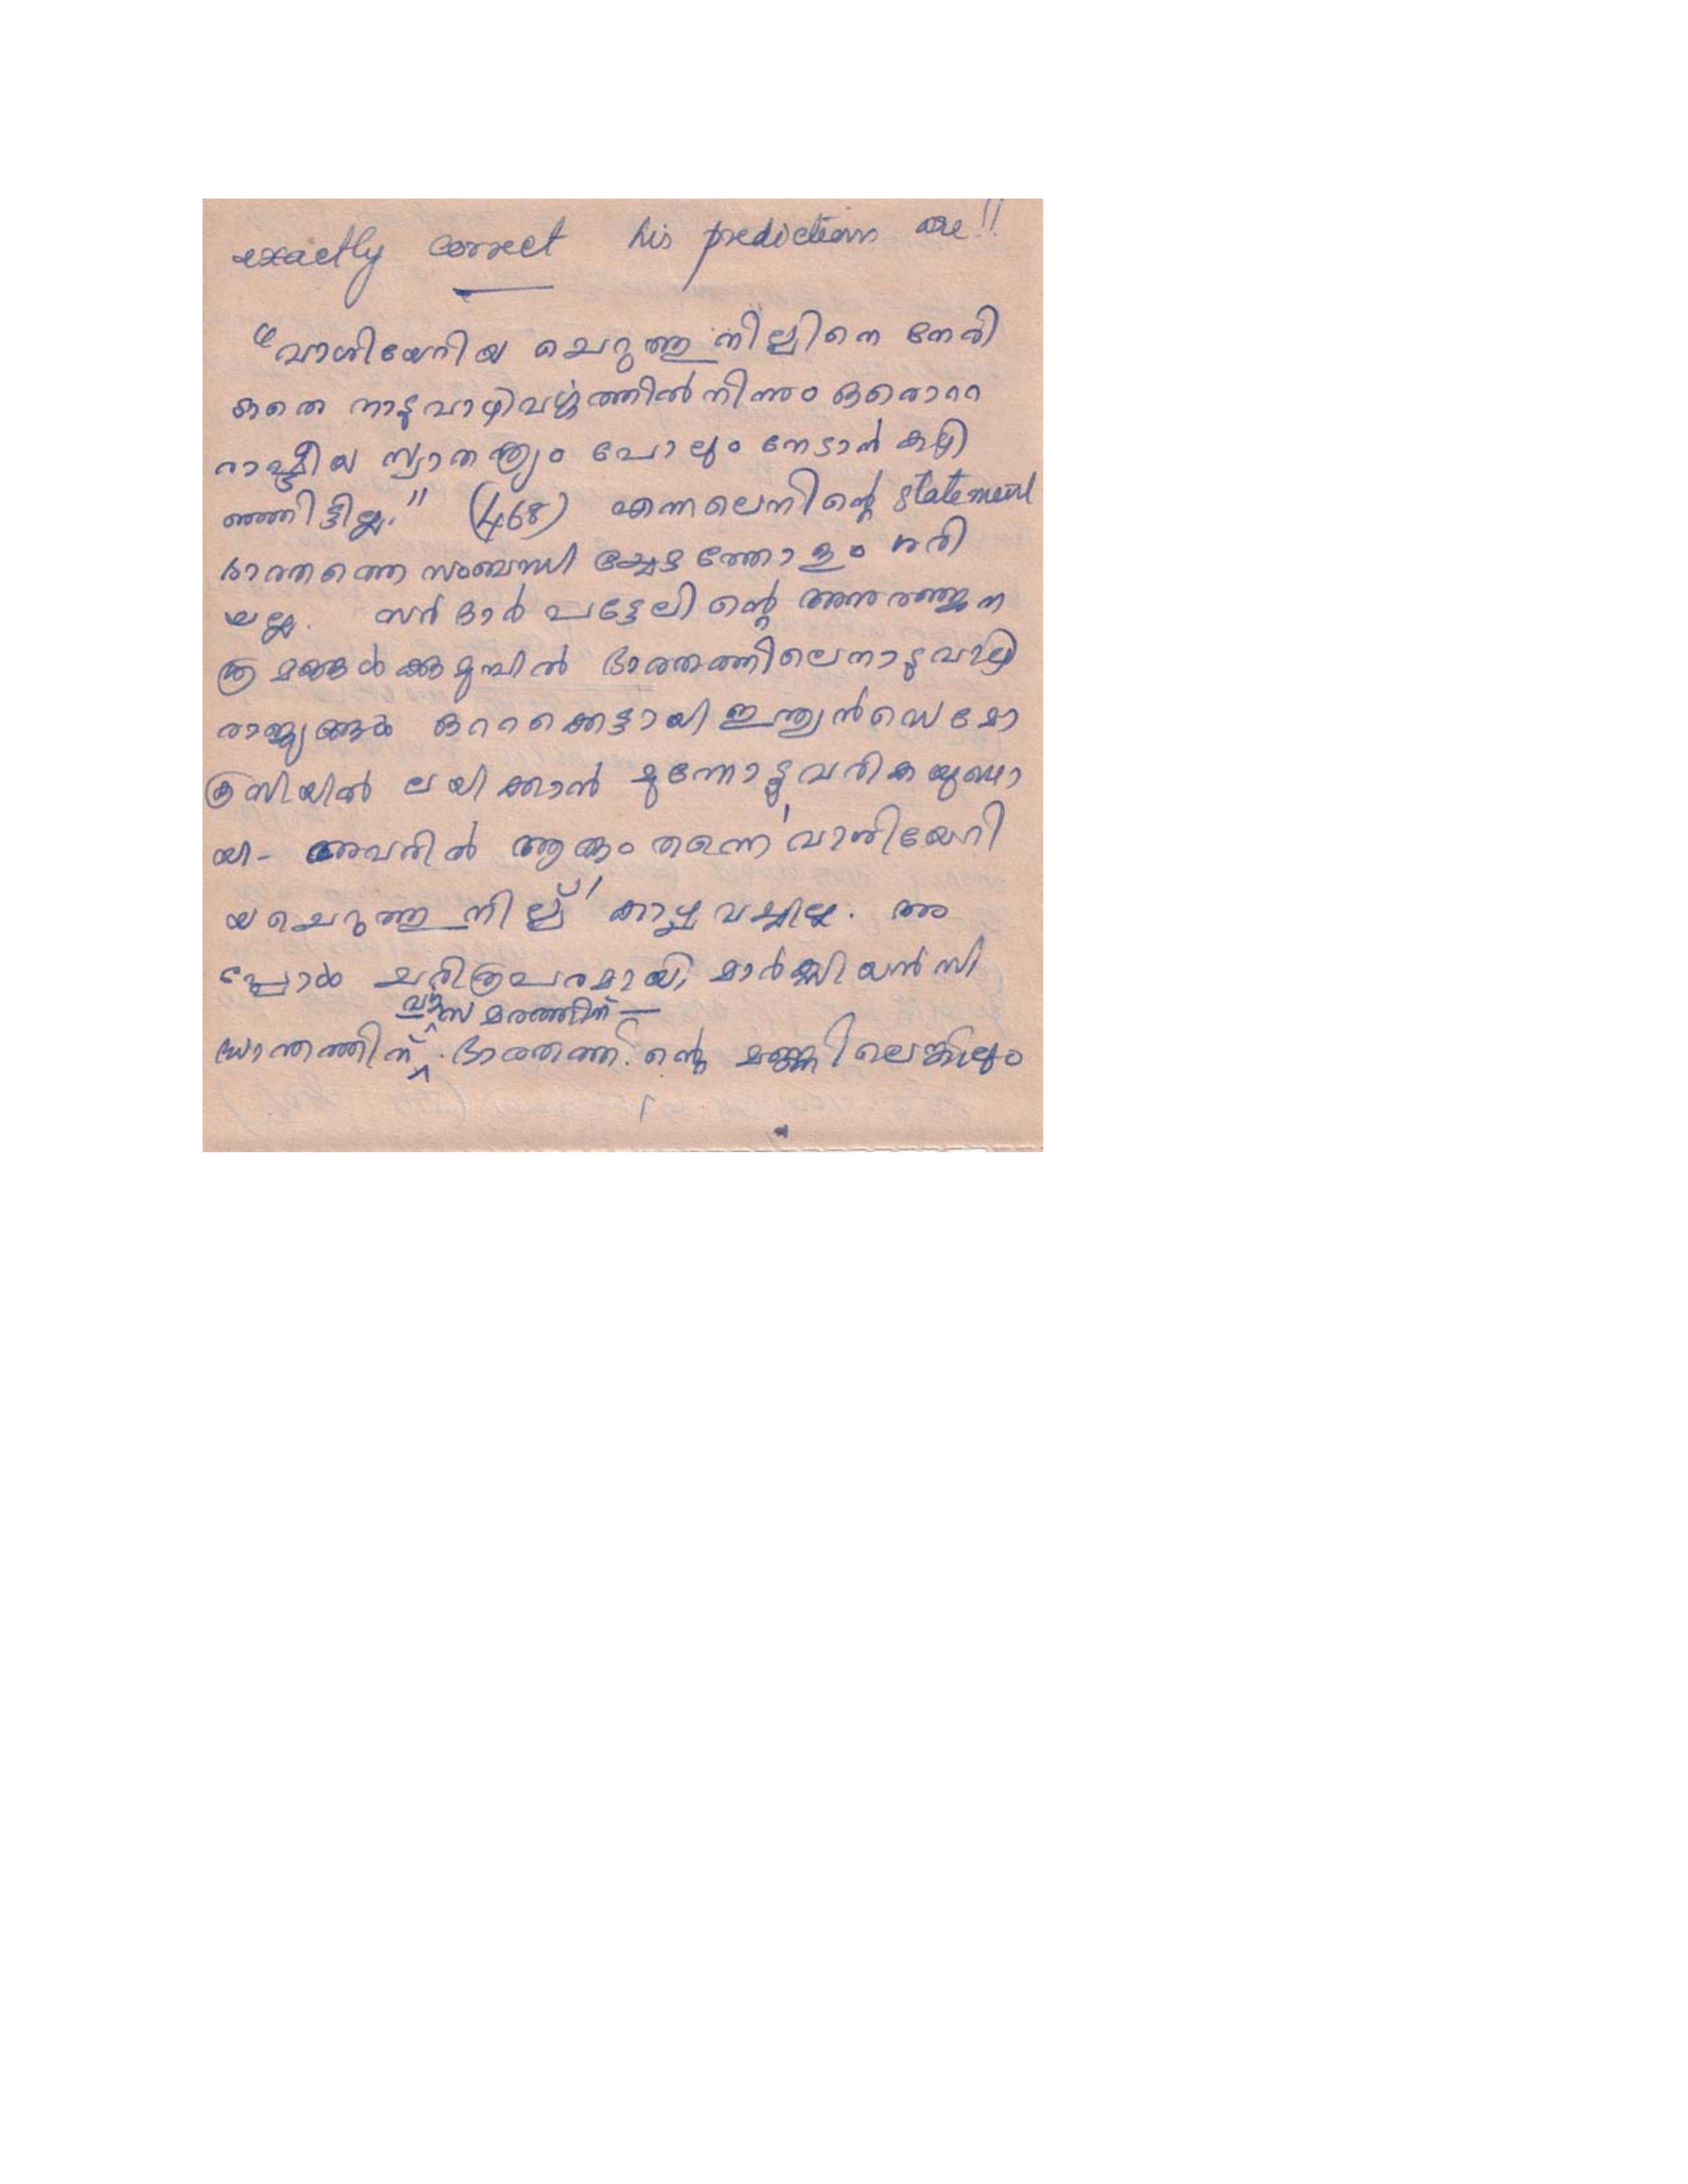 exactly correct his predictions are!!
"വാശിയേറിയ ചെറുത്തുനില്പിനെ നേരി
ടാതെ നാടുവാഴിവർഗ്ഗത്തിൽനിന്നും ഒരൊറ്റ
രാഷ്ട്രീയ സ്വാതന്ത്ര്യം പോലും നേടാൻ കഴി
ഞ്ഞിട്ടില്ല." (468) എന്നലെനിന്റെ statement
ഭാരതത്തെ സംബന്ധിച്ചേടത്തോളം ശരി
യല്ല. സർദാർ പട്ടേലിന്റെ അനുരഞ്ജന
ശ്രമങ്ങൾക്കുമുമ്പിൽ ഭാരതത്തിലെനാടുവാഴി
രാജ്യങ്ങൾ ഒറ്റക്കെട്ടായി ഇന്ത്യൻഡെമോ
ക്രസിയിൽ ലയിക്കാൻ മുന്നോട്ടുവരികയുണ്ടാ
യി- അവരിൽ ആരും തന്നെ 'വാശിയേറി
യചെറുത്തുനില്പ്' കാഴ്ചവച്ചില്ല. അ
പ്പോൾ ചരിത്രപരമായി, മാർക്സിയൻസി
സമരത്തിന് —
ദ്ധാന്തത്തിന് ഭാരതത്തിന്റെ മണ്ണിലെങ്കിലും